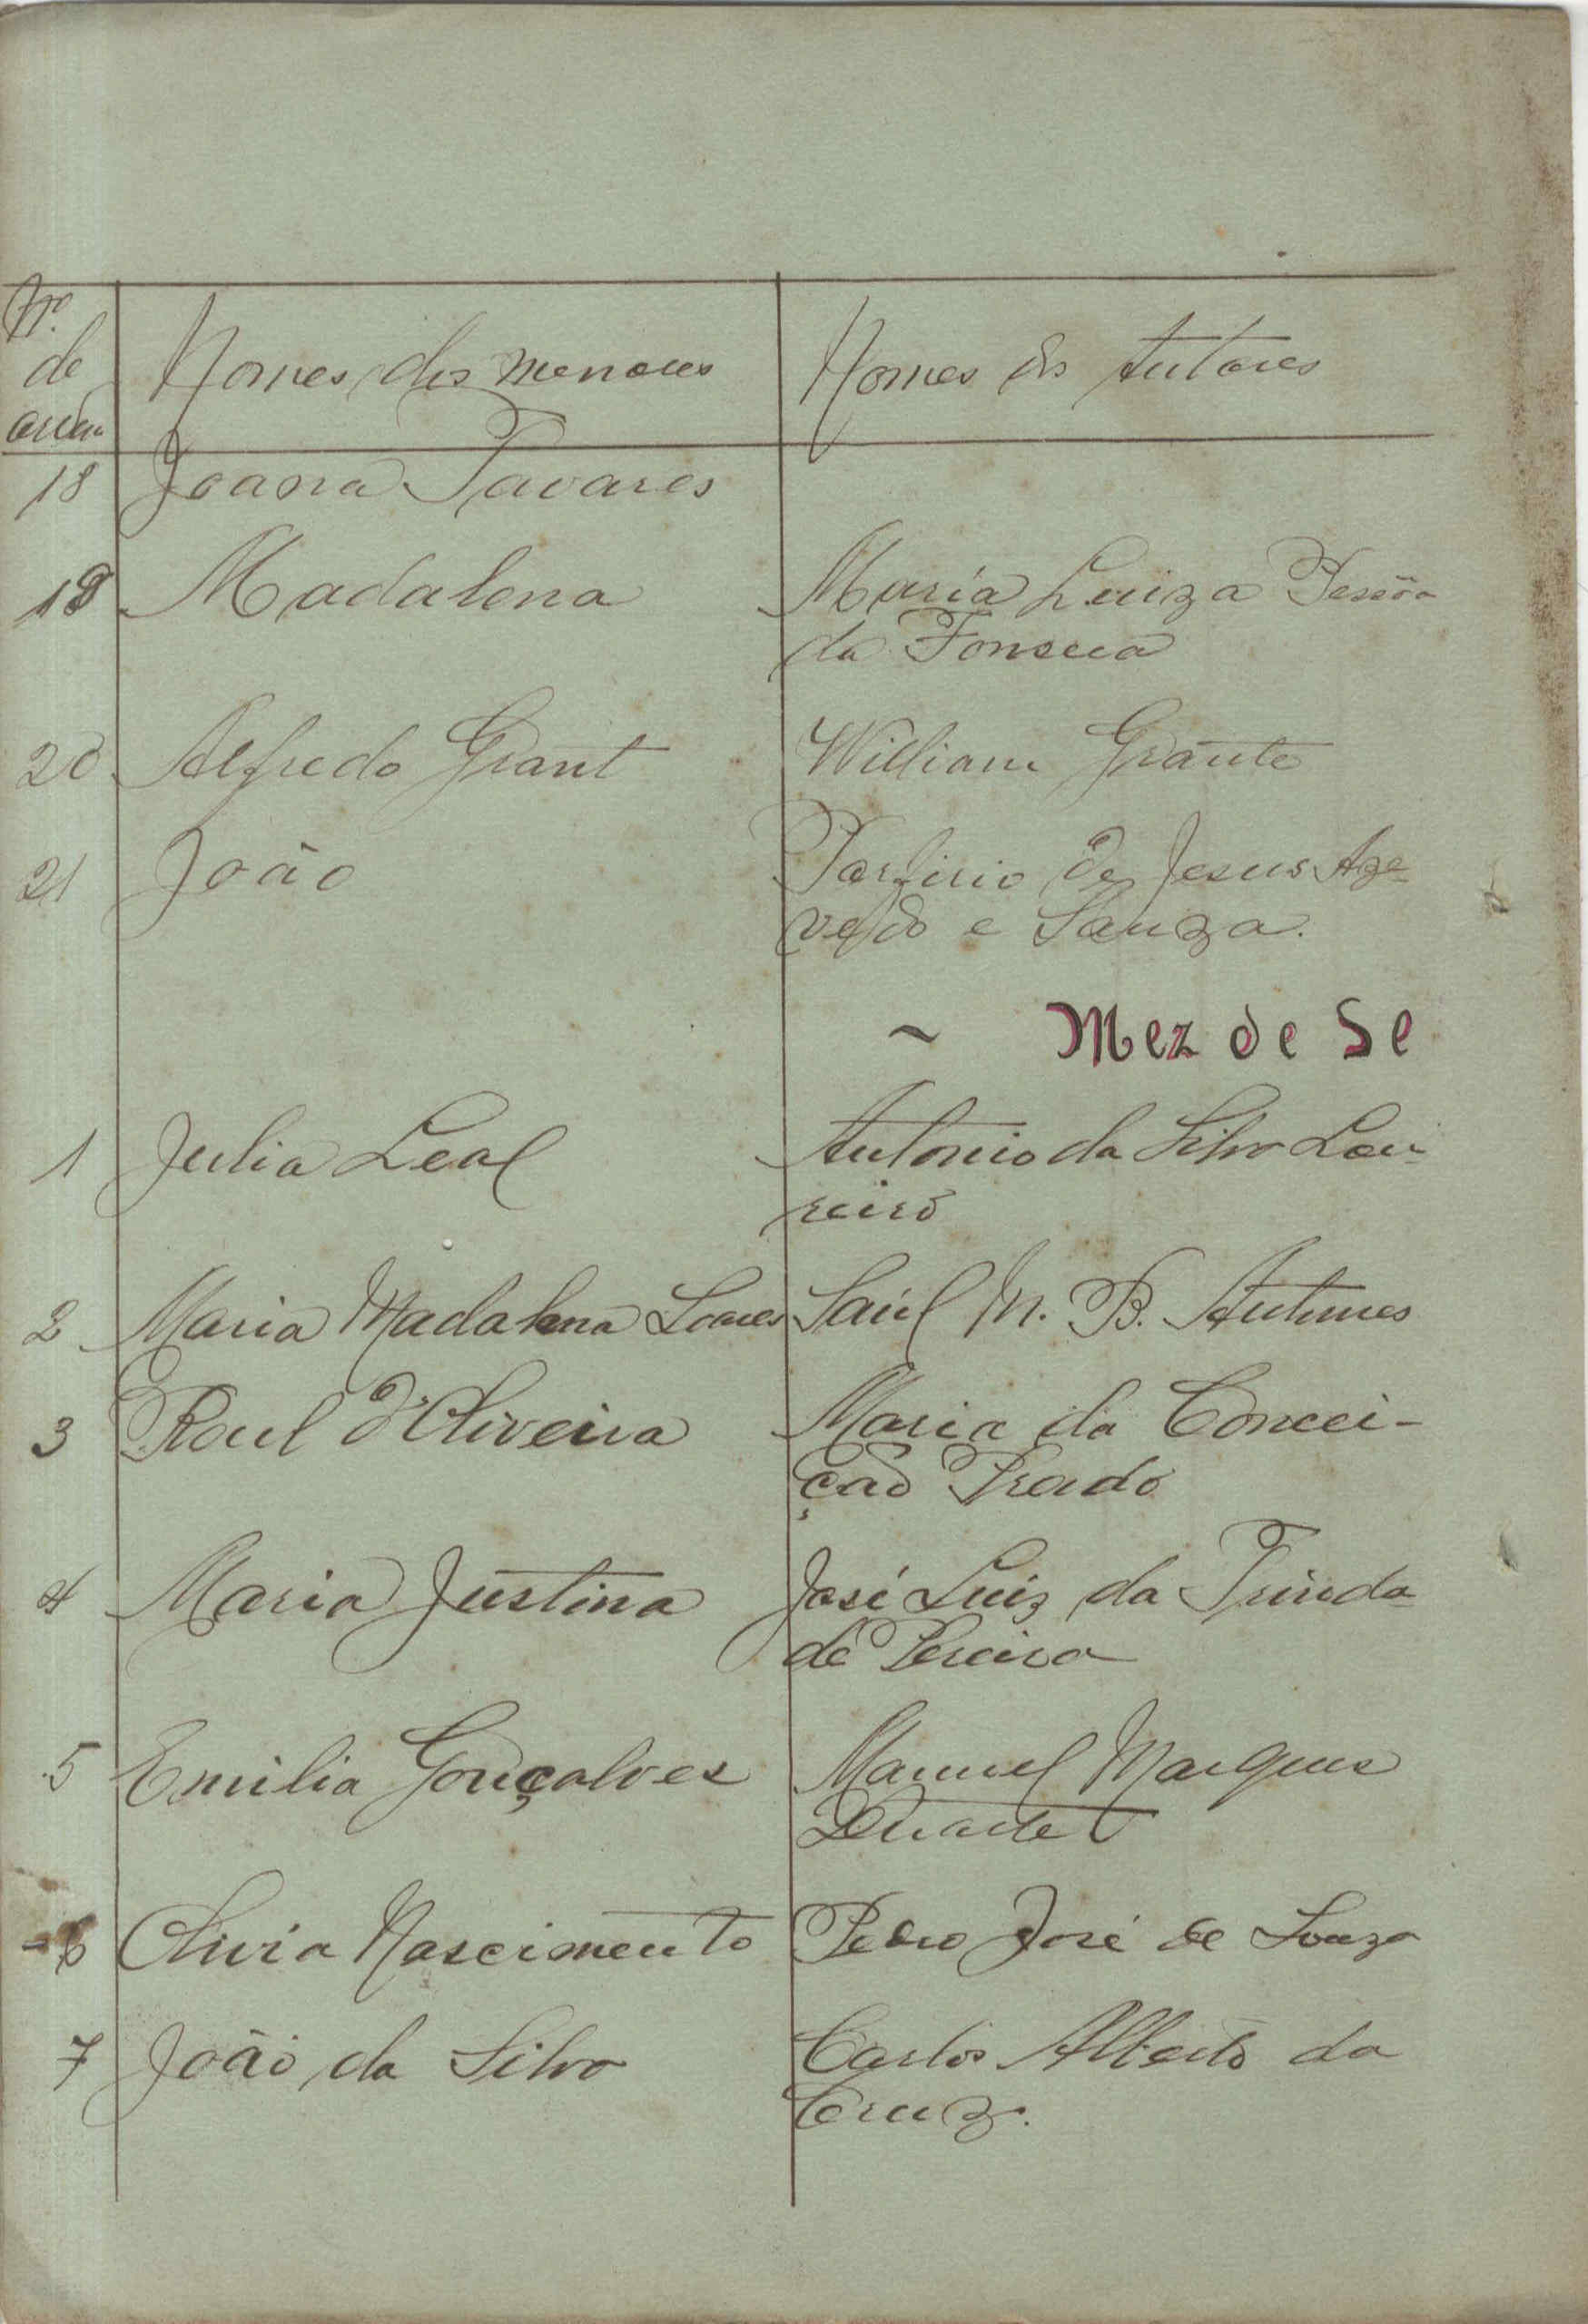 Nº
de
ordem
Nomes dos menores
Nomes dos tutores
18 Joana Tavares
19 Madalena Maria Luiza Pessôa
da Fonseca
20 Alfredo Grant William Grante
21 João Porfirio de Jesus Aze-
vedo e Souza.
~ Mez de Se
1 Julia Leal Antonio da Silva Lou-
reiro
2 Maria Madalena Soares Saúl M. B. Antunes
3 Raul d'Oliveira Maria da Concei-
ção Prado
4 Maria Justina José Luiz da Trinda-
de Pereira
5 Emilia Gonçalves Manuel Marques
Duarte
6 Olivia Nascimento Pedro José de Souza
7 João da Silva Carlos Alberto da
Cruz.